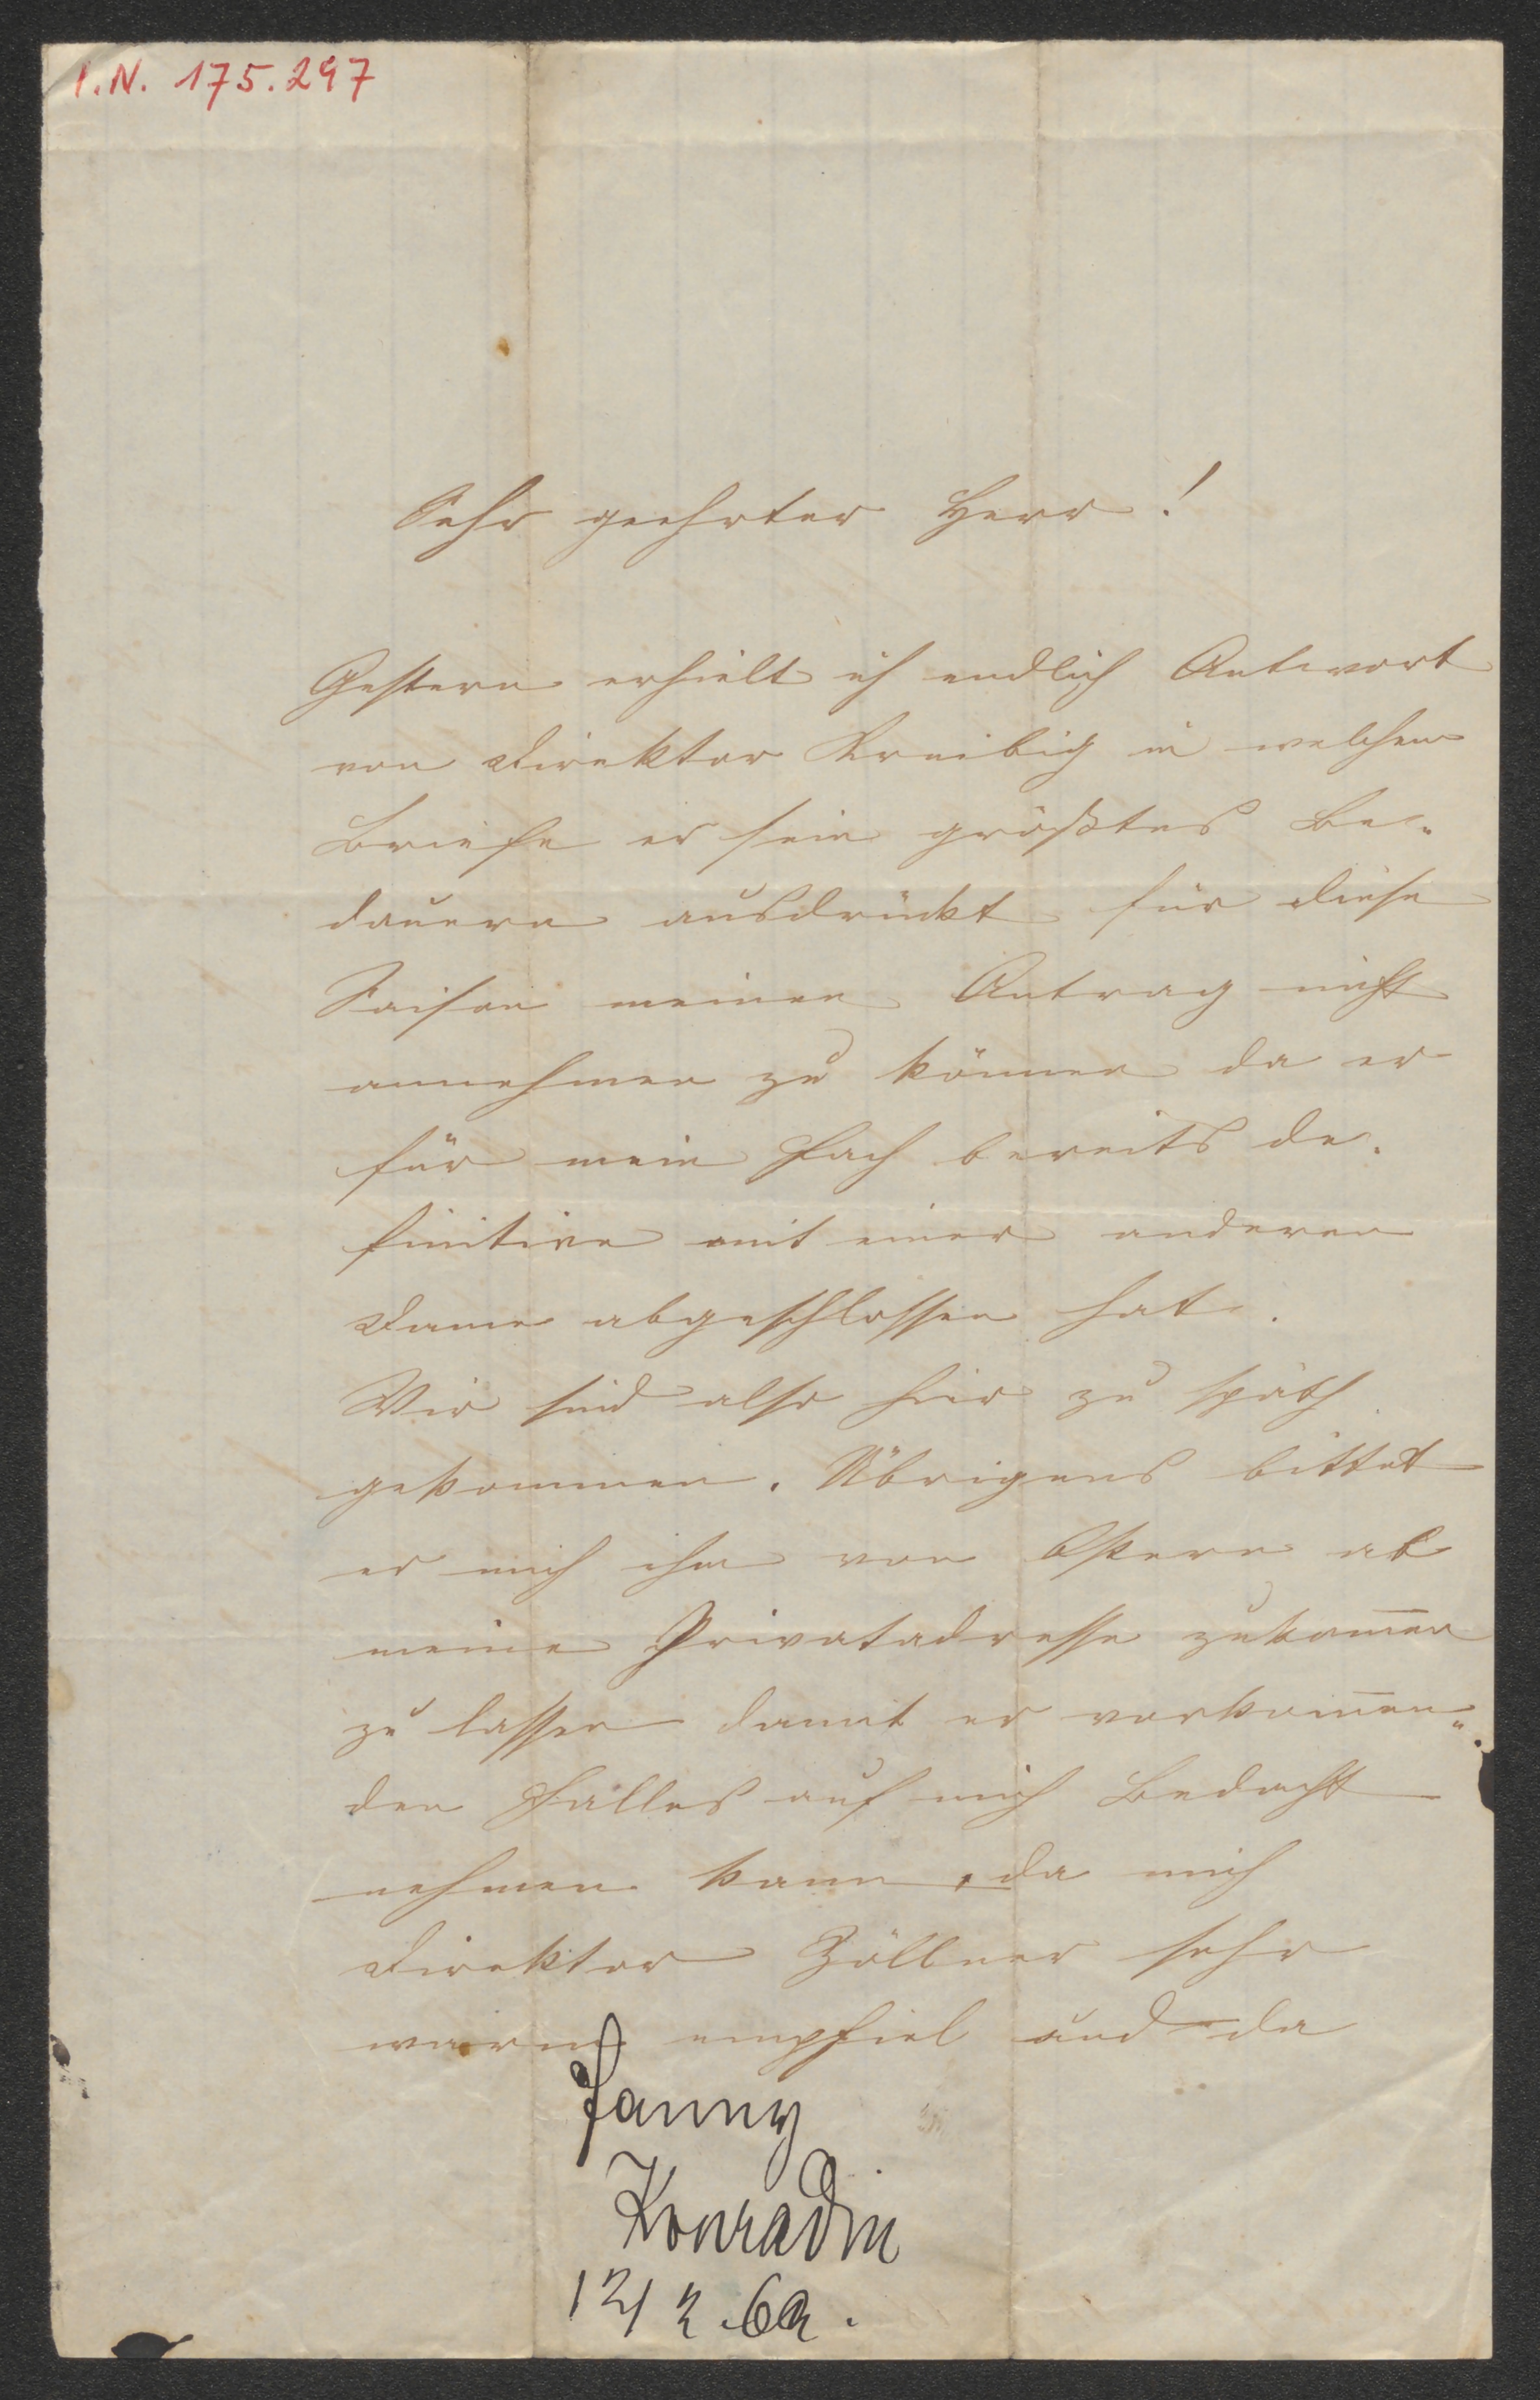 I.N. 175.297
Sehr geehrter Herr!
Gestern erhielt ich endlich Antwort
von Direktor Kreibig in welchem
Briefe er sein größtes Be-
dauern ausdrückt für diese
Saison meinen Antrag nicht
annehmen zu können da er
für mein Fach bereits de-
finitive mit einer anderen
Dame abgeschlossen hat.
Wir sind also hier zu späth
gekommen. Übrigens bittet
er mich ihm von Ostern ab
meine Privatadresse zukom̅en
zu lassen damit er vorkom̅en-
den Falles auf mich Bedacht
nehmen kann, da mich
Direktor Zöllner sehr
warm empfiel und da
Fanny
Konradin
12/2.62.